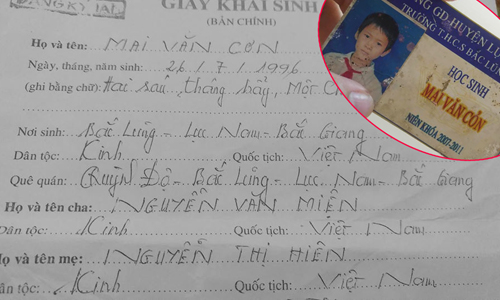 ĐĂNG KÝ LẠI
GIẤY KHAI SINH
(BẢN CHÍNH)
Họ và tên: MAI VĂN CƠN
Ngày, tháng, năm sinh: 26 / 7 / 1996
(ghi bằng chữ): Hai sáu, tháng bảy, Một
Nơi sinh: Bắc Lũng - Lục Nam - Bắc Giang
Dân tộc: Kinh Quốc tịch: Việt Nam
Quê quán: Quỳnh Độ - Bắc Lũng - Lục Nam - Bắc Giang
Họ và tên cha: NGUYỄN VĂN MIÊN
Dân tộc: Kinh Quốc tịch: Việt Nam
Họ và tên mẹ: NGUYỄN THỊ HIÊN
Dân tộc: Kinh Quốc tịch: Việt Nam
NG GD HUYỆN L
TRƯỜNG T.H.C.S BẮC LŨN
HỌC SINH
MAI VĂN CƠN
NIÊN KHÓA 2007-2011